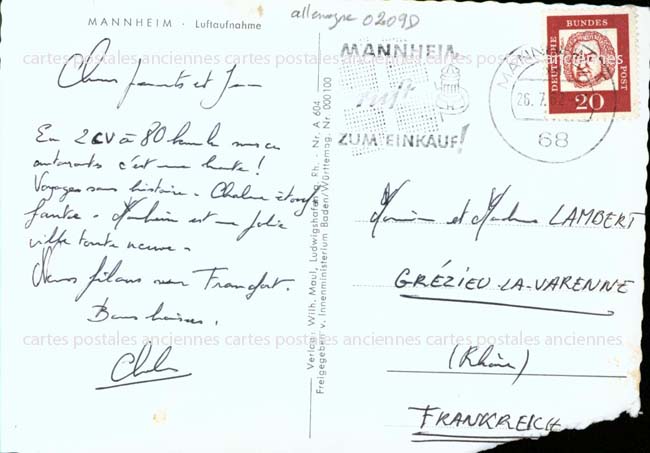 MANNHEIM · Luftaufnahme
allemagne 0209D
Chers parents et Jean
En 2CV à 80 km/h sur ces
autoroutes c'est une honte !
Voyages sans histoire. Chaleur étouf
fante. Manheim est une jolie
ville toute neuve.
Nous filons vers Francfort.
Bons baisers.
Verlag: Wilh. Maul, Ludwigshafen a. Rh. - Nr. A 604
Freigegeben v. Innenministerium Baden/Württemberg Nr. 000100
MANNHEIM
ZUM EINKAUF!
MANN
26.7.62
68
DEUTSCHE BUNDES POST
20
Monsieur et Madame LAMBERT
GRÉZIEU-LA-VARENNE
(Rhône)
FRANKREICH
cartes postales anciennes cartes postales anciennes cartes postales anciennes
cartes postales anciennes cartes postales anciennes cartes postales anciennes
cartes postales anciennes cartes postales anciennes cartes postales anciennes